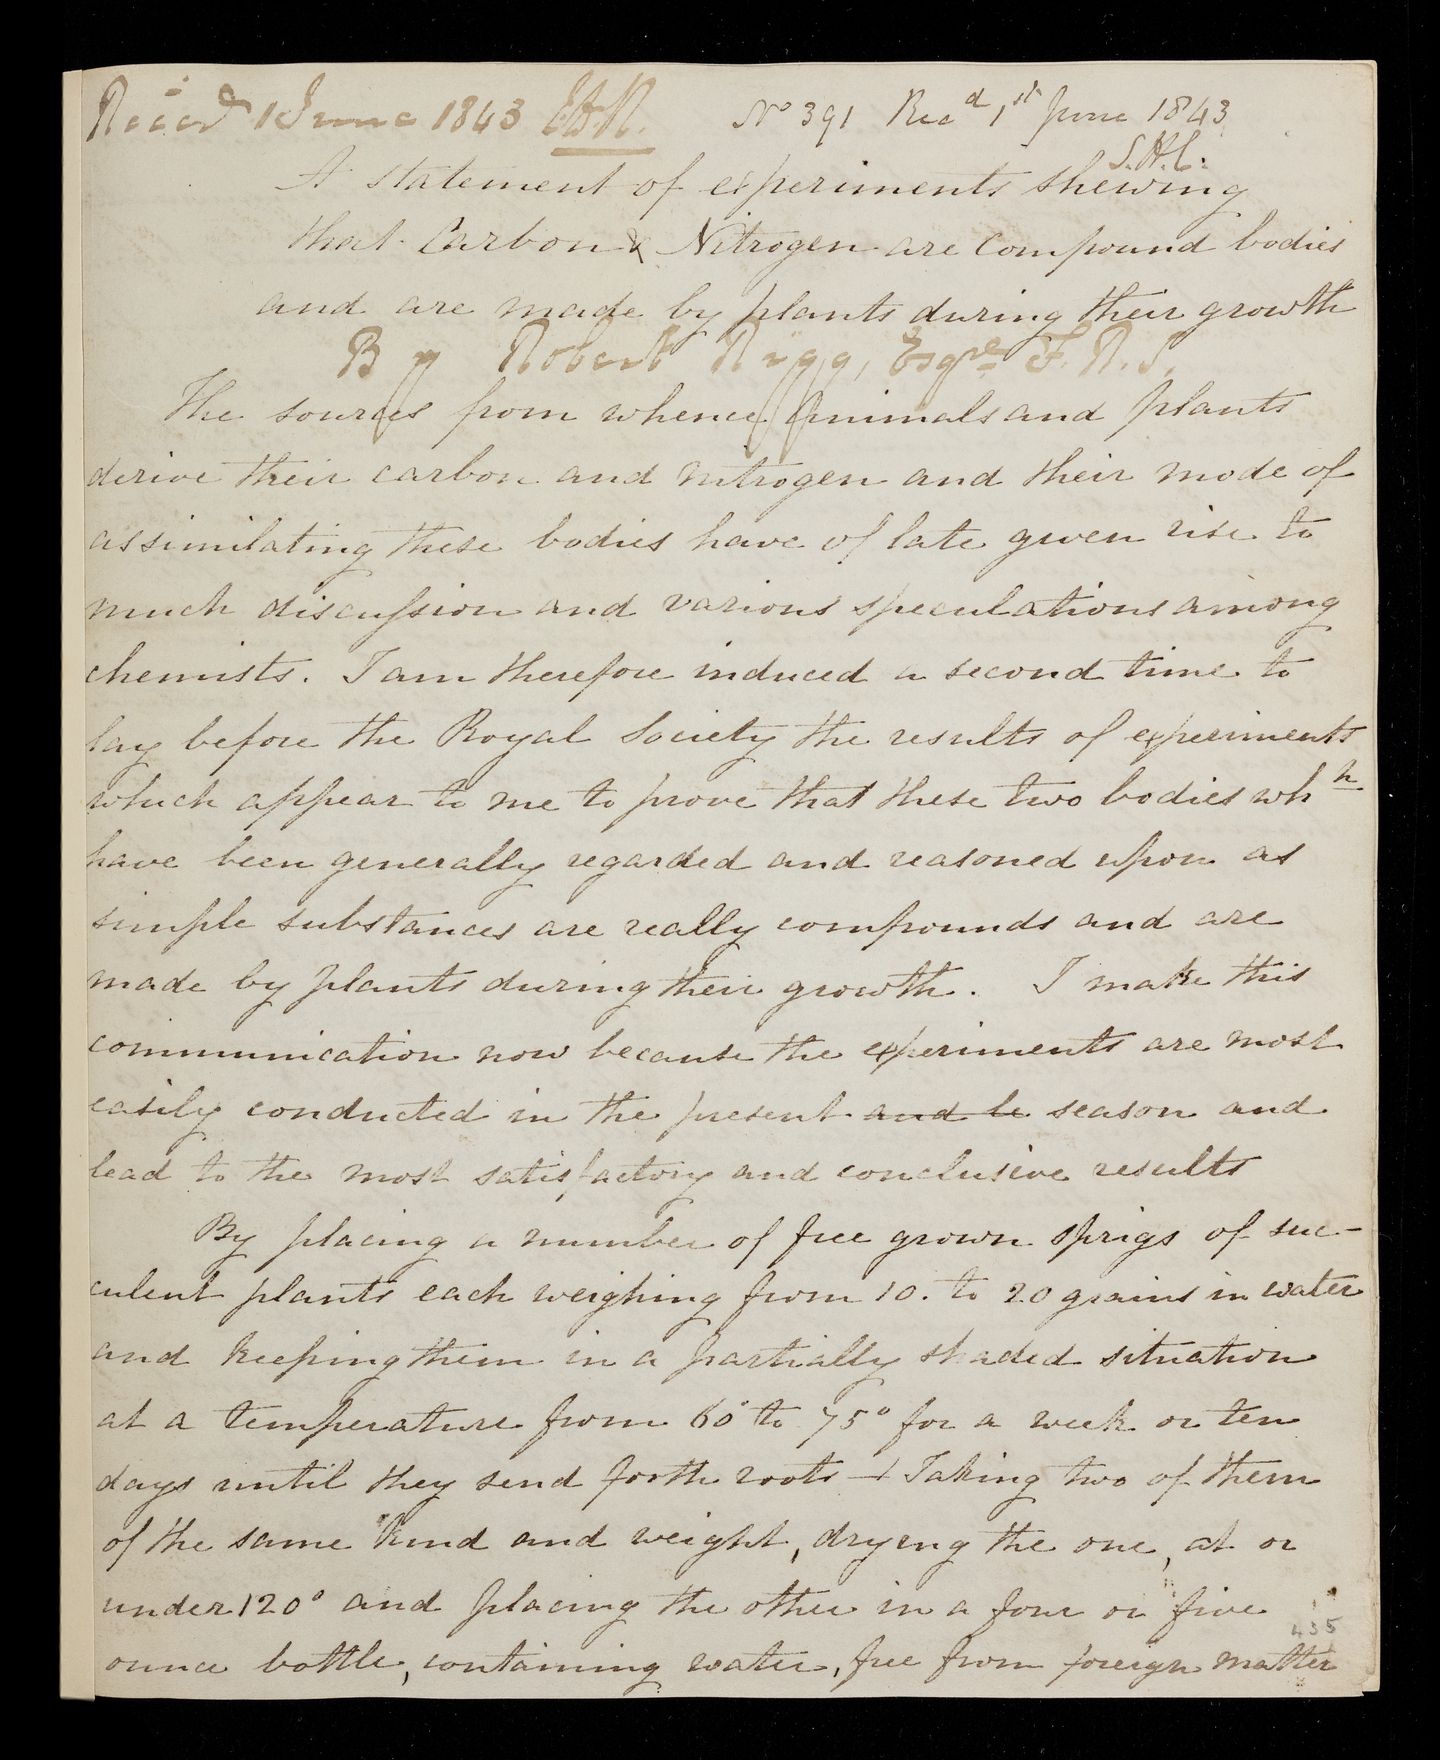 Received 1 June 1843
No 391 Recd 1st June 1843
S.H.C.
A statement of experiments shewing
that Carbon & Nitrogen are compound bodies
and are made by plants during their growth
By Robert Rigg, Esqre. F.R.S.
The sources from whence Animals and plants
derive their carbon and nitrogen and their mode of
assimilating these bodies have of late given rise to
much discussion and various speculations among
chemists. I am therefore induced a second time to
lay before the Royal Society the results of experiments
which appear to me to prove that these two bodies whh
have been generally regarded and reasoned upon as
simple substances are really compounds and are
made by plants during their growth. I make this
communication now because the experiments are most
easily conducted in the present and le season and
lead to the most satisfactory and conclusive results
By placing a number of free grown sprigs of suc-
culent plants each weighing from 10. to 20 grains in water
and keeping them in a partially shaded situation
at a temperature from 60° to 75° for a week or ten
days until they send forth roots – Taking two of them
of the same kind and weight, drying the one, at or
under 120° and placing the other in a four or five
435
ounce bottle, containing water, free from foreign matter